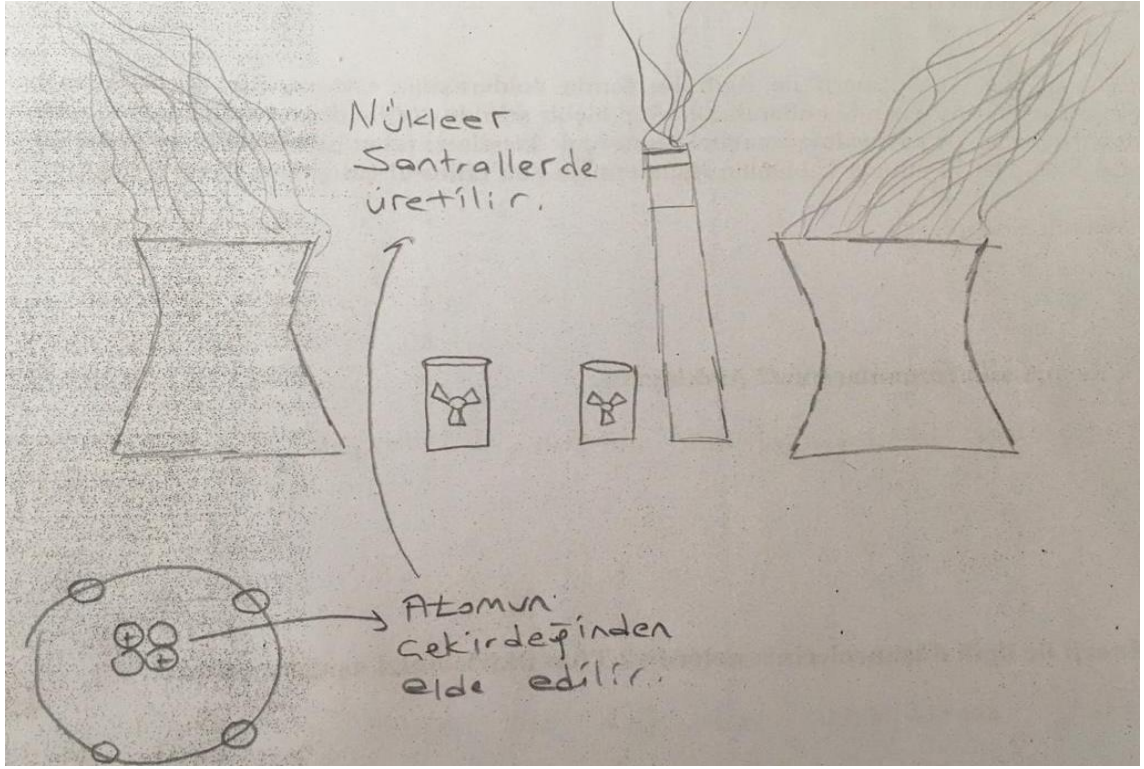 Nükleer
Santrallerde
üretilir.
Atomun
çekirdeğinden
elde edilir.